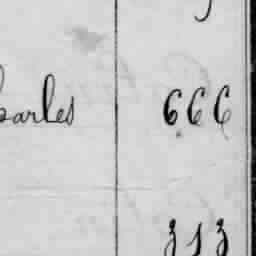 harles 666
313